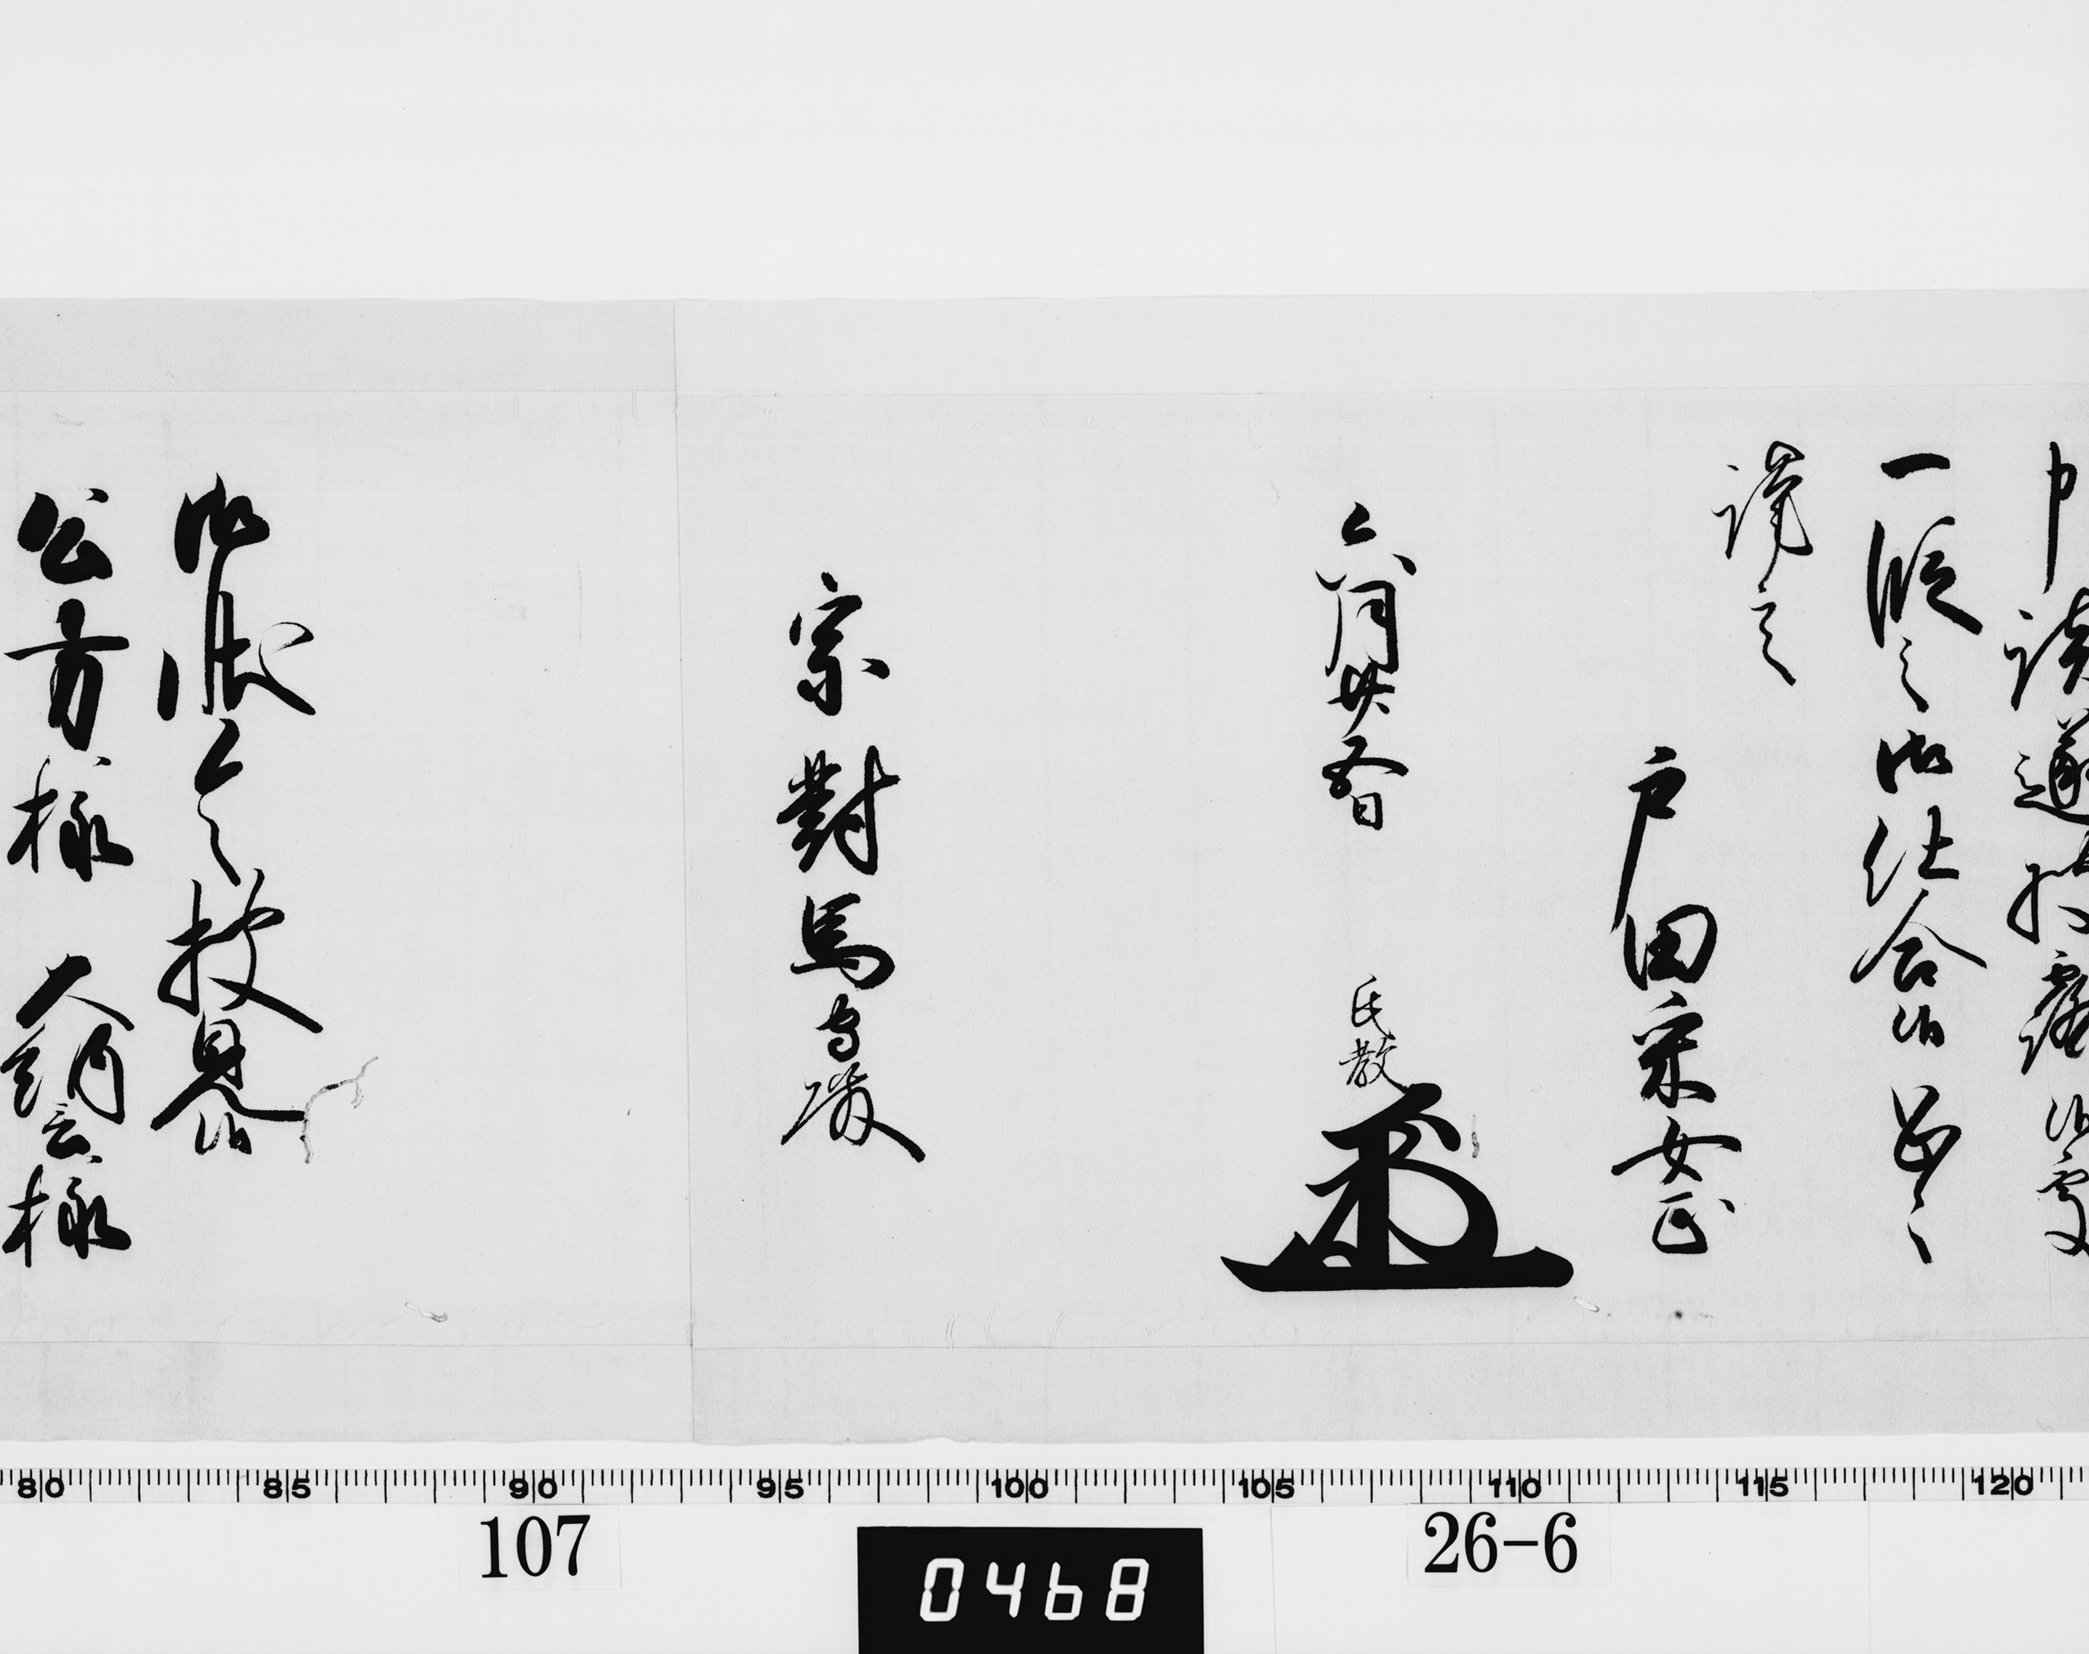 申談遂披露候處
一段之御仕合候恐々
謹言
戸田采女正
六月廿五日
氏教
宗對馬守殿
御状令披見候
公方様 大納言様
80 85 90 95 100 105 110 115 120
107
0468
26-6